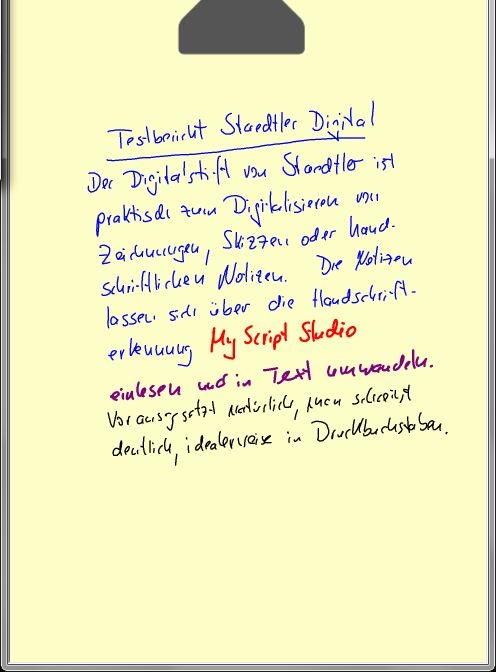 Testbericht Staedtler Digital
Der Digitalstift von Staedtler ist
praktisch zum Digitalisieren von
Zeichnungen, Skizzen oder hand-
schriftlichen Notizen. Die Notizen
lassen sich über die Handschrift-
erkennung My Script Studio
einlesen und in Text umwandeln.
Vorausgesetzt natürlich, man schreibt
deutlich, idealerweise in Druckbuchstaben.